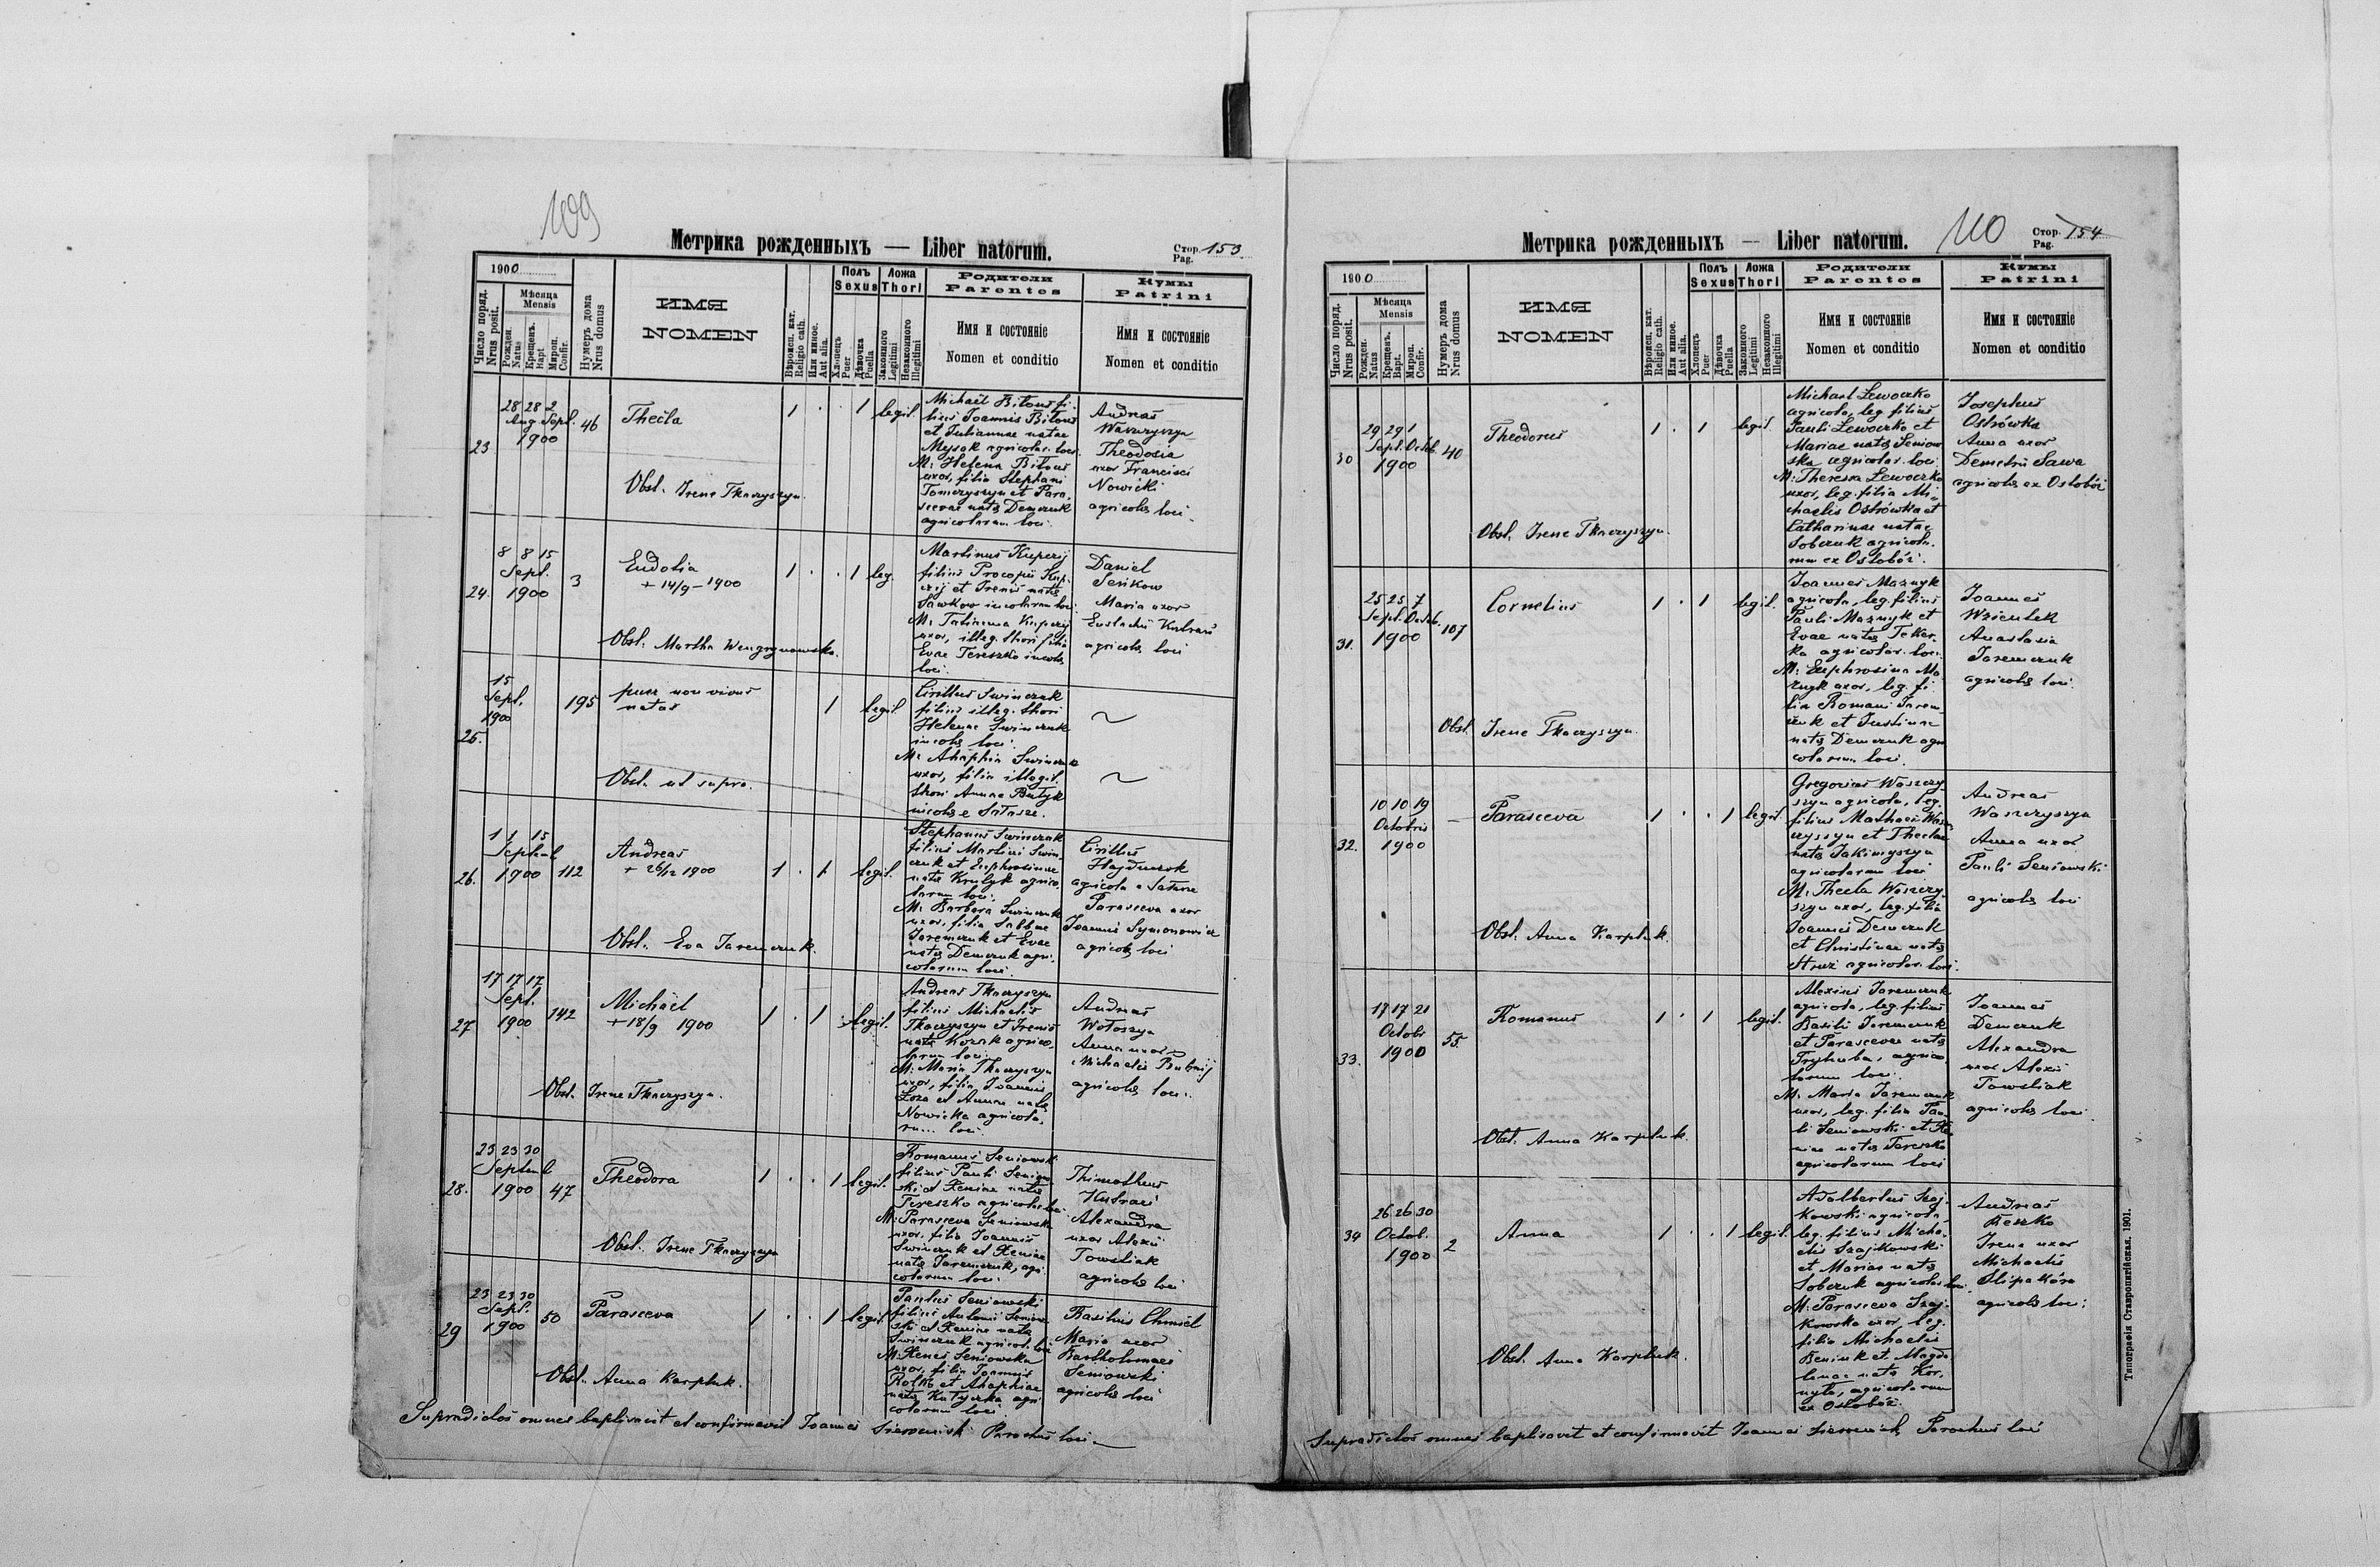 109
Метрика рожденныхъ — Liber natorum.
Стор. 153
Pag.
1900
Число поряд.
Nrus posit.
Мѣсяца
Mensis
Рожден.
Natus
Крещенъ.
Bapt.
Мироп.
Confir.
Нумеръ дома
Nrus domus
ИМЯ
NOMEN
Вѣроисп. кат.
Religio cath.
Или иное.
Aut alia.
Полъ
Sexus
Хлопецъ
Puer
Дѣвочка
Puella
Ложа
Thori
Законного
Legitimi
Незаконного
Illegitimi
Родители
Parentes
Имя и состояніе
Nomen et conditio
Кумы
Patrini
Имя и состояніе
Nomen et conditio
23
28 28 2
Aug Sept.
1900
46
Thecla
1 . . 1 legit.
Obst. Irene Tkaczyszyn.
Michael Bitous fi-
lius Joannis Bitous
et Juliannae natae
Mysak agricolar. loci.
M: Helena Bitous
uxor, filia Stephani
Tomczyszyn et Para-
scevae natae Demczuk
agricolarum loci.
Andreas
Waszczyszyn
Theodosia
uxor Francisci
Nowicki
agricolae loci.
24.
8 8 15
Sept.
1900
3
Eudotia
+ 14/9 - 1900
1 . . 1 leg.
Obst. Martha Wengrynowska.
Martinus Kuperij
filius Procopii Kup-
erij et Irenis natae
Sawkow incolarum loci.
M: Tatianna Kuperij
uxor, illeg. thori filia
Evae Tereszko incolae
loci.
Daniel
Senkow
Maria uxor
Eustachii Kutrań
agricolae loci
25.
15
Sept.
1900
195
puer non vivus
natus
1 legit.
Obst. ut supra.
Cirillus Swinczuk
filius illeg. thori
Helenae Swinczuk
incolae loci.
M: Ahaphia Swinczuk
uxor, filia illegit.
thori Annae Butyk
incolae e Sałasze.
26.
1 1 15
Septemb
1900
112
Andreas
+ 26/12 1900
1 . 1 legit.
Obst. Eva Jaremczuk.
Stephanus Swinczuk
filius Martini Swin-
czuk et Euphrosinae
natae Krulyk agrico-
larum loci.
M: Barbara Swinczuk
uxor, filia Sabbae
Jaremczuk et Evae
natae Demczuk agri-
colarum loci.
Cirillus
Hajduczok
agricola e Sałasze
Parasceva uxor
Joannis Symonowicz
agricolae loci
27
17 17 17
Sept.
1900
142
Michael
+ 18/9 1900
1 . 1 legit.
Obst. Irene Tkaczyszyn.
Andreas Tkaczyszyn
filius Michaelis
Tkaczyszyn et Irenis
natae Kozak agrico-
larum loci.
M: Maria Tkaczyszyn
uxor, filia Joannis
Łoza et Annae natae
Nowicka agricola-
ru... loci.
Andreas
Wołoszyn
Anna uxor
Michaelis Bubnij
agricolae loci.
28.
23 23 30
Septemb
1900
47
Theodora
1 . . 1 legit.
Obst. Irene Tkaczyszyn
Romanus Seniowski
filius Pauli Seniow-
ski et Xeniae natae
Tereszko agricolar. loci
M: Parasceva Seniowska
uxor. filia Joannis
Swinczuk et Xeniae
natae Jaremczuk, agri-
colarum loci.
Thimotheus
Kutrań
Alexandra
uxor Alexii
Towstiak
agricolae loci
29
23 23 30
Sept.
1900
50
Parasceva
1 . . 1 legit.
Obst. Anna Karpluk.
Paulus Seniowski
filius Antonii Seniow-
ski et Xeniae natae
Swinczuk agricol. loci
M: Xenes Seniowska
uxor, filia Joannis
Rolko et Ahaphiae
natae Kutyczka agri-
colarum loci
Basilius Chmiel
Maria uxor
Bartholomaei
Seniowski
agricolae loci
Supradictos omnes baptisavit et confirmavit Joannes Parochus loci
110
Метрика рожденныхъ — Liber natorum.
Стор. 154
Pag.
1900
Число поряд.
Nrus posit.
Мѣсяца
Mensis
Рожден.
Natus
Крещенъ.
Bapt.
Мироп.
Confir.
Нумеръ дома
Nrus domus
ИМЯ
NOMEN
Вѣроисп. кат.
Religio cath.
Или иное.
Aut alia.
Полъ
Sexus
Хлопецъ
Puer
Дѣвочка
Puella
Ложа
Thori
Законного
Legitimi
Незаконного
Illegitimi
Родители
Parentes
Имя и состояніе
Nomen et conditio
Кумы
Patrini
Имя и состояніе
Nomen et conditio
30
29 29 1
Sept. Octob.
1900
40
Theodorus
1 . 1 legit.
Obst. Irene Tkaczyszyn.
Michael Lewoczko
agricola, leg. filius
Pauli Lewoczko et
Mariae natae Seniow-
ska agricolar. loci
M: Theresa Lewoczko
uxor, leg. filia Mi-
chaelis Ostrówka et
Catharinae natae
Sobczuk agricola-
rum ex Ostobóż.
Josephus
Ostrówka
Anna uxor
Demetrii Sawa
agricolae ex Ostobóż
31.
25 25 7
Sept. Octob.
1900
107
Cornelius
1 . 1 legit.
Obst. Irene Tkaczyszyn.
Joannes Maznyk
agricola, leg. filius
Pauli Maznyk et
Evae natae Teker-
ka agricolar. loci.
M: Euphrosina Ma-
znyk uxor, leg. fi-
lia Romani Jarem-
czuk et Justinae
natae Demczuk agri-
colarum loci.
Joannes
Wzientek
Anastasia
Jaremczuk
agricolae loci.
32.
10 10 19
Octobris
1900
—
Parasceva
1 . . 1 legit.
Obst. Anna Karpluk.
Gregorius Waszczy-
szyn agricola, leg.
filius Mathaei Wasz-
czyszyn et Theclae
natae Jakimyszyn
agricolarum loci
M: Thecla Waszczy-
szyn uxor, leg. filia
Joannis Demczuk
et Christinae natae
Hruź agricolar. loci.
Andreas
Waszczyszyn
Anna uxor
Pauli Seniowski
agricolae loci
33.
17 17 21
Octobr
1900
55.
Romanus
1 . 1 legit.
Obst. Anna Karpluk.
Alexius Jaremczuk
agricola, leg. filius
Basilii Jaremczuk
et Parascevae natae
Tryhuba, agrico-
larum loci.
M: Maria Jaremczuk
uxor, leg. filia Pau-
li Seniowski et Xe-
niae natae Tereszko
agricolarum loci
Joannes
Demczuk
Alexandra
uxor Alexii
Towstiak
agricolae loci
34
26 26 30
Octob.
1900
2
Anna
1 . . 1 legit.
Obst. Anna Karpluk.
Adalbertus Szaj-
kowski agricola
leg. filius Micha-
elis Szajkowski
et Mariae natae
Sobczuk agricolar. loci.
M: Parasceva Szaj-
kowska uxor, leg.
filia Michaelis
Beniuk et Magda-
lenae natae Kor-
nyło, agricolarum
ex Ostobóż.
Andreas
Reszko
Irena uxor
Michaelis
Slipakóra
agricolae loci.
Supradictos omnes baptisavit et confirmavit Joannes Parochus loci
Типографія Ставропигійская. 1901.